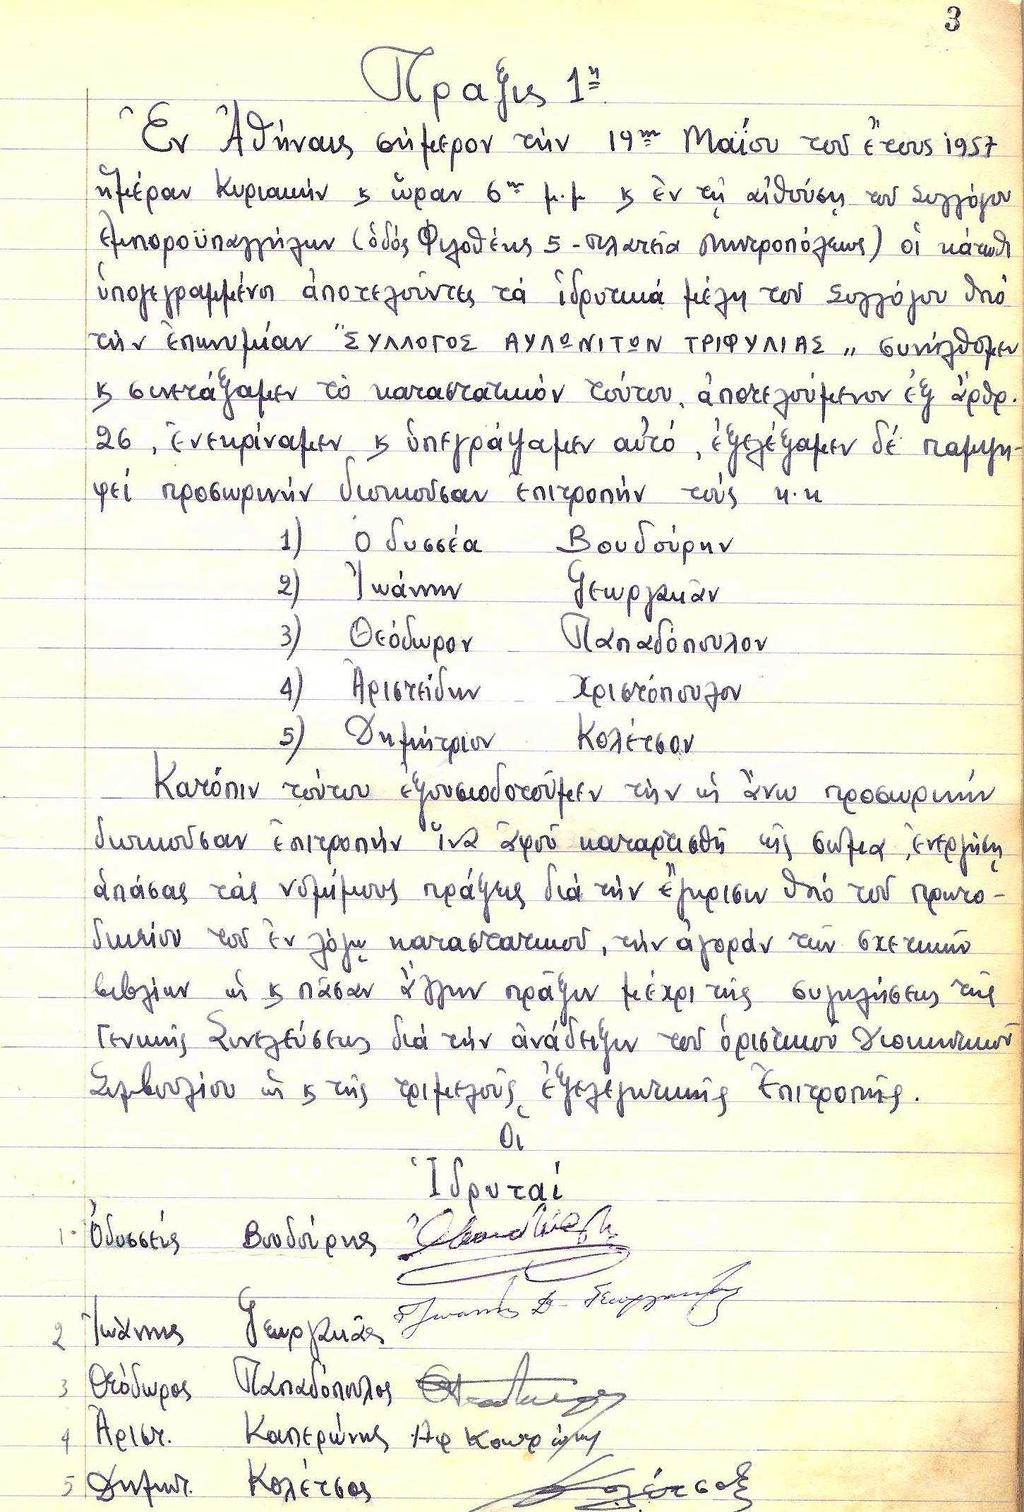 3
Πράξις 1η
Ἐν Ἀθήναις σήμερον τὴν 19ην Μαΐου τοῦ ἔτους 1957
ἡμέραν Κυριακὴν ϗ ὥραν 6ην μ.μ ϗ ἐν τῇ αἰθούσῃ τοῦ Συλλόγου
Ἐμποροϋπαλλήλων (ὁδὸς Φιλοθέης 5 - πλατεῖα Μητροπόλεως) οἱ κάτωθι
ὑπογεγραμμένοι ἀποτελοῦντες τὰ ἱδρυτικὰ μέλη τοῦ Συλλόγου ὑπὸ
τὴν ἐπωνυμίαν "ΣΥΛΛΟΓΟΣ ΑΥΛΩΝΙΤΩΝ ΤΡΙΦΥΛΙΑΣ" συνήλθομεν
ϗ συνετάξαμεν τὸ καταστατικὸν τούτου, ἀποτελούμενον ἐξ ἄρθρ.
26, ἐνεκρίναμεν ϗ ὑπεγράψαμεν αὐτό, ἐξελέξαμεν δὲ παμψη-
φεί προσωρινὴν διοικοῦσαν ἐπιτροπὴν τοὺς κ.κ
1) Ὀδυσσέα Βουδούρην
2) Ἰωάννην Γεωργακᾶν
3) Θεόδωρον Παπαδόπουλον
4) Ἀριστείδην Χριστόπουλον
5) Δημήτριον Κολέτσον
Κατόπιν τούτου ἐξουσιοδοτοῦμεν τὴν ὡς ἄνω προσωρινὴν
διοικοῦσαν ἐπιτροπὴν ἵνα ἀφοῦ καταρτισθῆ εἰς σῶμα, ἐνεργήσῃ
ἁπάσας τὰς νομίμους πράξεις διὰ τὴν ἔγκρισιν ὑπὸ τοῦ πρωτο-
δικείου τοῦ ἐν λόγῳ καταστατικοῦ, τὴν ἀγορὰν τῶν σχετικῶν
βιβλίων ὡς ϗ πᾶσαν ἄλλην πρᾶξιν μέχρι τῆς συγκλήσεως τῆς
Γενικῆς Συνελεύσεως διὰ τὴν ἀνάδειξιν τοῦ ὁριστικοῦ Διοικητικοῦ
Συμβουλίου ὡς ϗ τῆς τριμελοῦς ἐξελεγκτικῆς Ἐπιτροπῆς.
Οἱ
Ἱδρυταί
1 Ὀδυσσεύς Βουδούρης
2 Ἰωάννης Γεωργακᾶς Ἰωάννης Δ. Γεωργακᾶς
3 Θεόδωρος Παπαδόπουλος
4 Ἀριστ. Καπερώνης Αρ Καπερώνης
5 Δημητ. Κολέτσος Κολέτσος